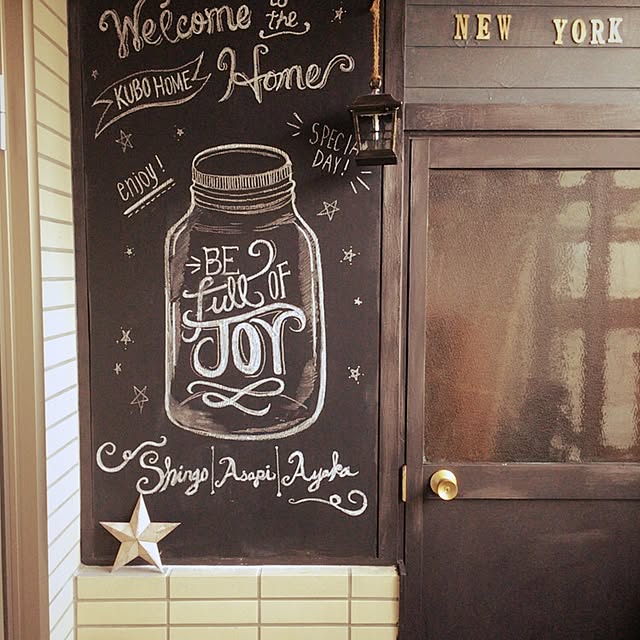 Welcome to the
KUBO HOME Home
NEW YORK
enjoy!
SPECIAL
DAY!
BE
full OF
JOY
Shingo | Asapi | Ayaka